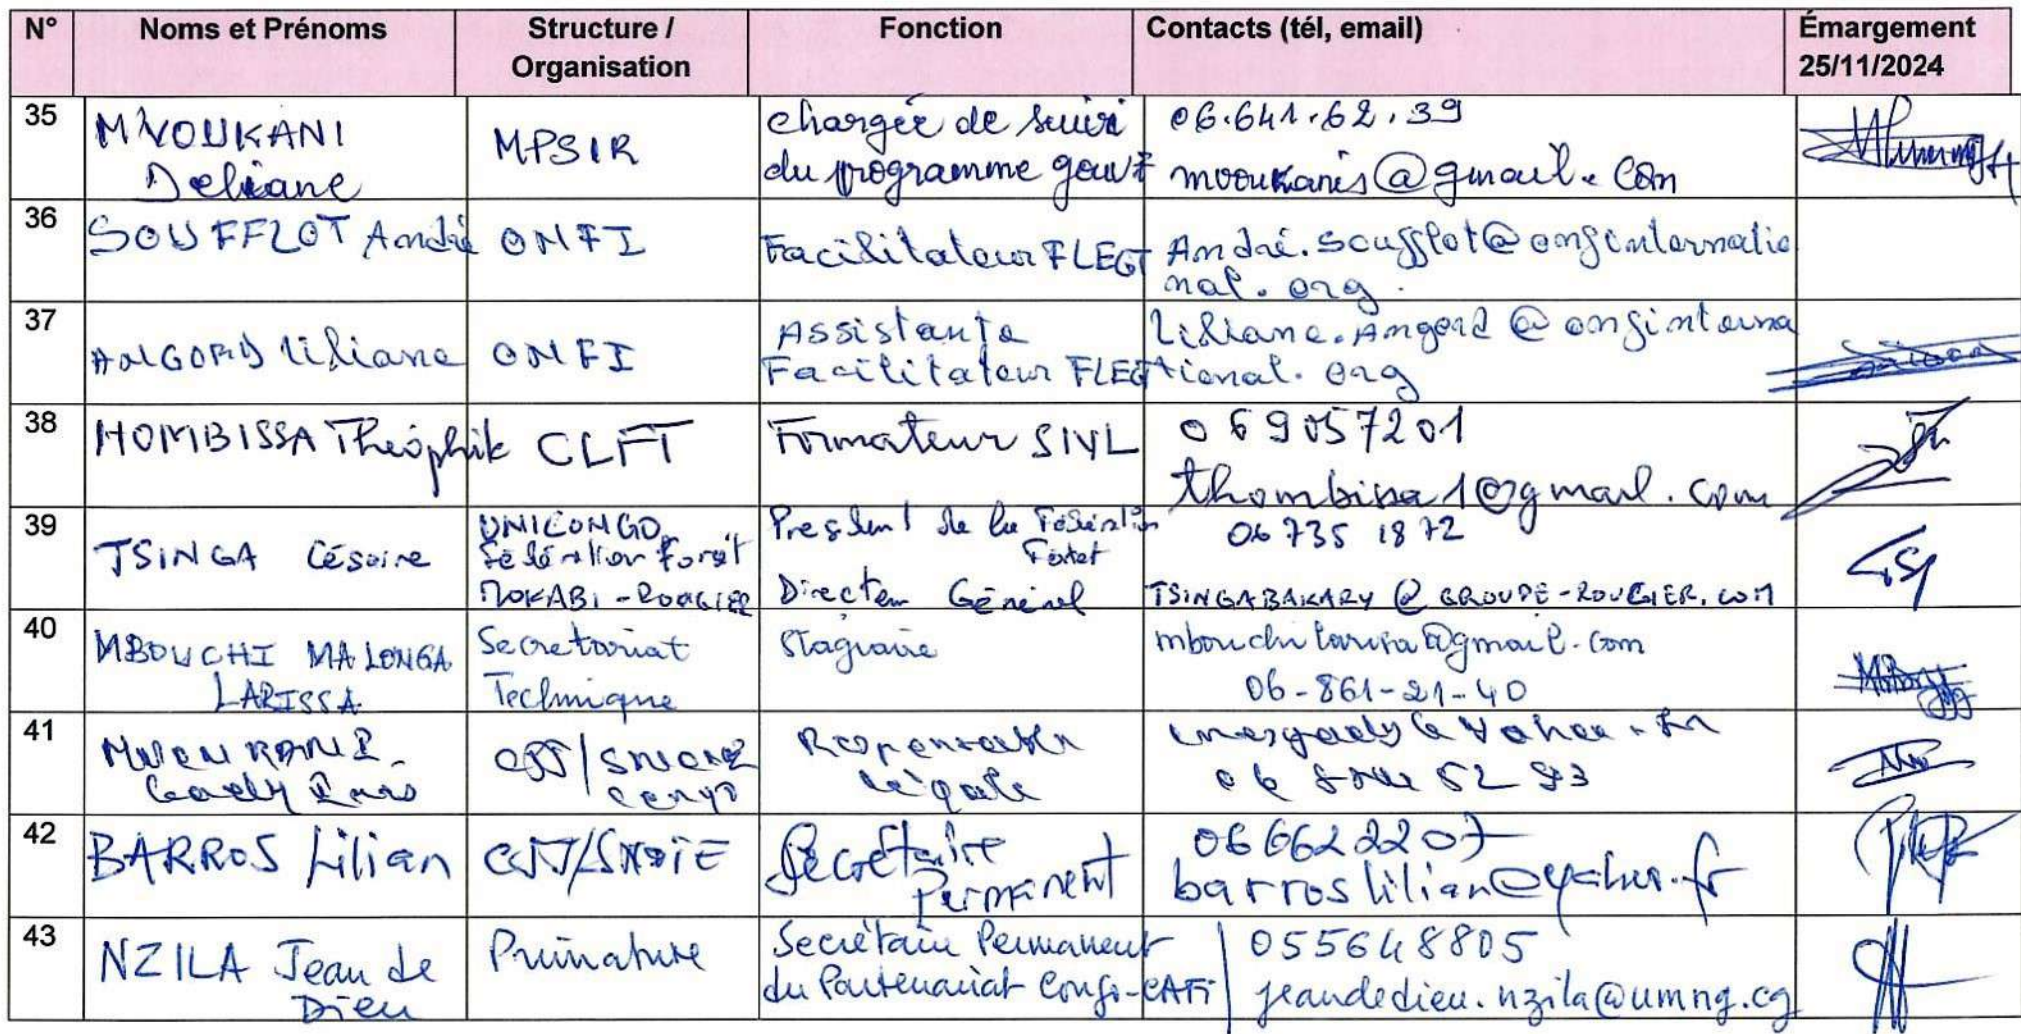 N° Noms et Prénoms Structure / Organisation Fonction Contacts (tél, email) Émargement 25/11/2024
35
MVOUKANI
Deliane
MPSIR
chargée de suivi
du programme gouvt
06.641.62.39
mvoukanis@gmail.com
36
SOUFFLOT André
ONFI
Facilitateur FLEGT
André.soufflot@onfinternatio
nal.org.
37
ANGORD Liliane
ONFI
Assistante
Facilitateur FLEGT
Liliane.Angord@onfinterna
tional.org
38
HOMBISSA Théophile
CLFT
Formateur SIVL
069057201
thombissa1@gmail.com
39
TSINGA Césaire
UNICONGO
Fédération Forêt
MOKABI-ROUGIER
President de la Fédération
Foret
Directeur Général
06 735 1872
TSINGABAKARY@GROUPE-ROUGIER.COM
40
MBOUCHI MALONGA
LARISSA
Secretariat
Technique
Stagiaire
mbouchilarissa@gmail.com
06-861-21-40
41
CJJ/SNOIE
Congo
Responsable
légale
42
BARROS Lilian
CJJ/SNOIE
Secrétaire
Permanent
066622207
barroslilian@yahoo.fr
43
NZILA Jean de
Dieu
Primature
Secrétaire Permanent
du Partenariat Congo-CAFI
055648805
jeandedieu.nzila@umng.cg